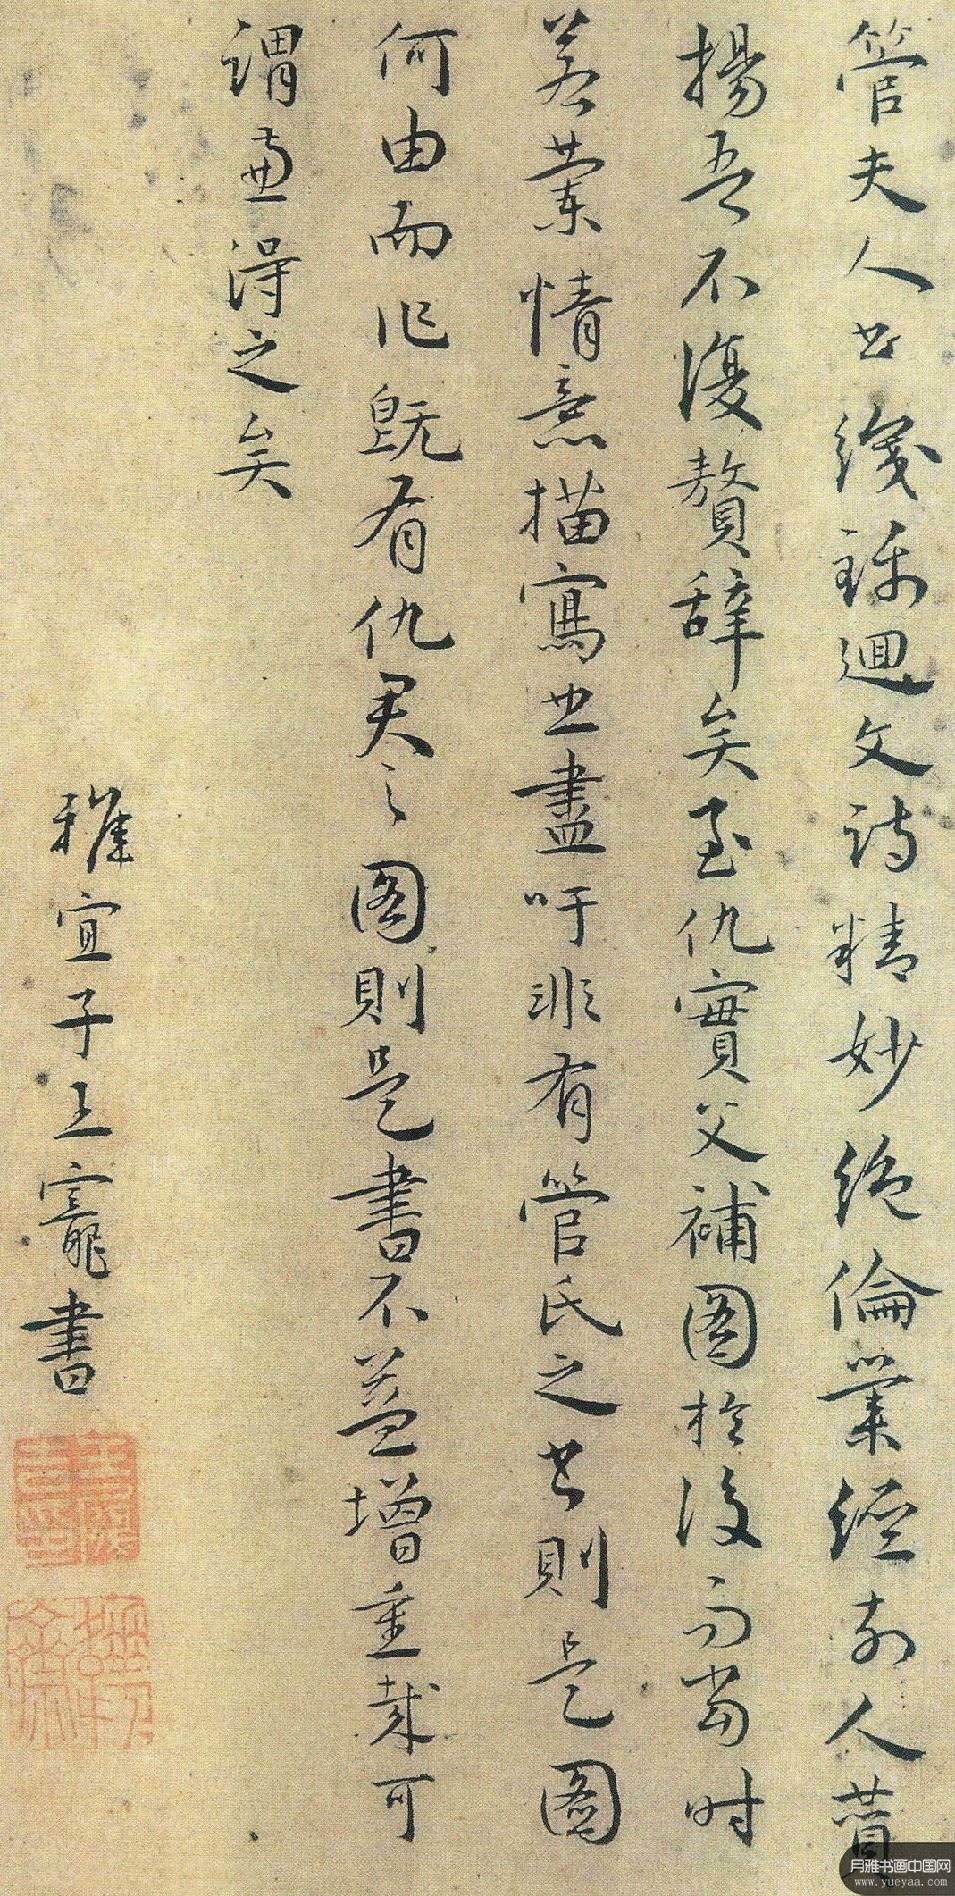 管夫人书織錦迴文詩精妙絕倫業經前人賛
揚吾不復贅辭矣至仇實父補圖於後而當時
若蘭情意描寫世盡吁非有管氏之书則是圖
何由而作既有仇君之圖則是書不益增重哉可
謂兼得之矣
雅宜子王寵書
月雅书画中国网
www.yueyaa.com